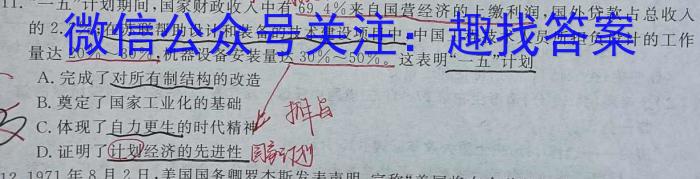 11. "一五"计划期间,国家财政收入中有69.4%来自国营经济的上缴利润,国外贷款占总收入
的2. 在苏联帮助设计和装备的技术建设项目中,中国 的工作
微信公众号关注:趣找答案
量达20%~30%,机器设备安装量达30%~50%。这表明"一五"计划
A. 完成了对所有制结构的改造
B. 奠定了国家工业化的基础
C. 体现了自力更生的时代精神
D. 证明了计划经济的先进性
国家计划
12. 1971年8月2日,美国国务卿罗杰斯发表声明,宣称"美国将